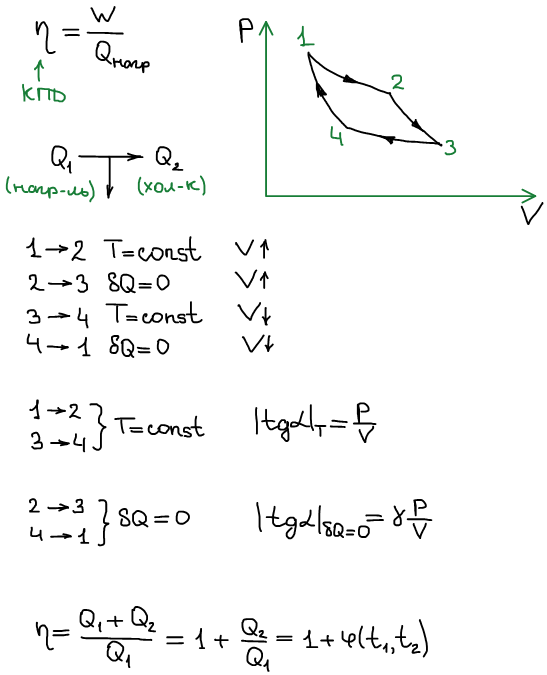 η = W / Qнагр
КПД
P
1
2
3
4
V
Q₁ → Q₂
(нагр-ль) (хол-к)
1→2 T=const V↑
2→3 δQ=0 V↑
3→4 T=const V↓
4→1 δQ=0 V↓
1→2
3→4 } T=const |tgα|_T = P/V
2→3
4→1 } δQ=0 |tgα|_δQ=0 = γ P/V
η = (Q₁ + Q₂)/Q₁ = 1 + Q₂/Q₁ = 1 + φ(t₁,t₂)